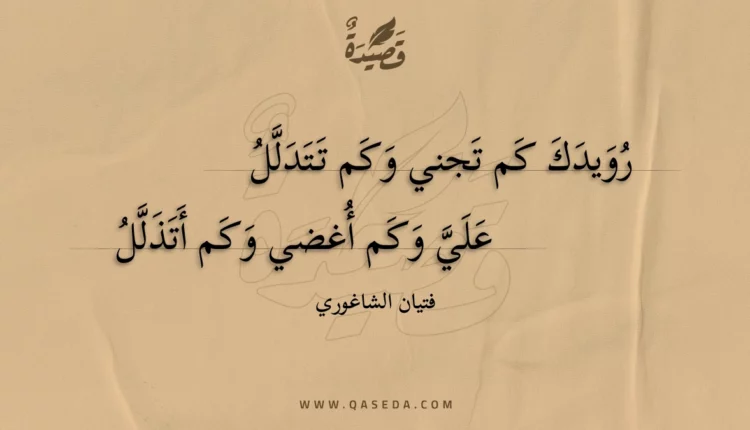 قَصِيدَةٌ
رُوَيدَكَ كَم تَجني وَكَم تَتَدَلَّلُ
عَلَيَّ وَكَم أُغضي وَكَم أَتَذَلَّلُ
فتيان الشاغوري
WWW.QASEDA.COM